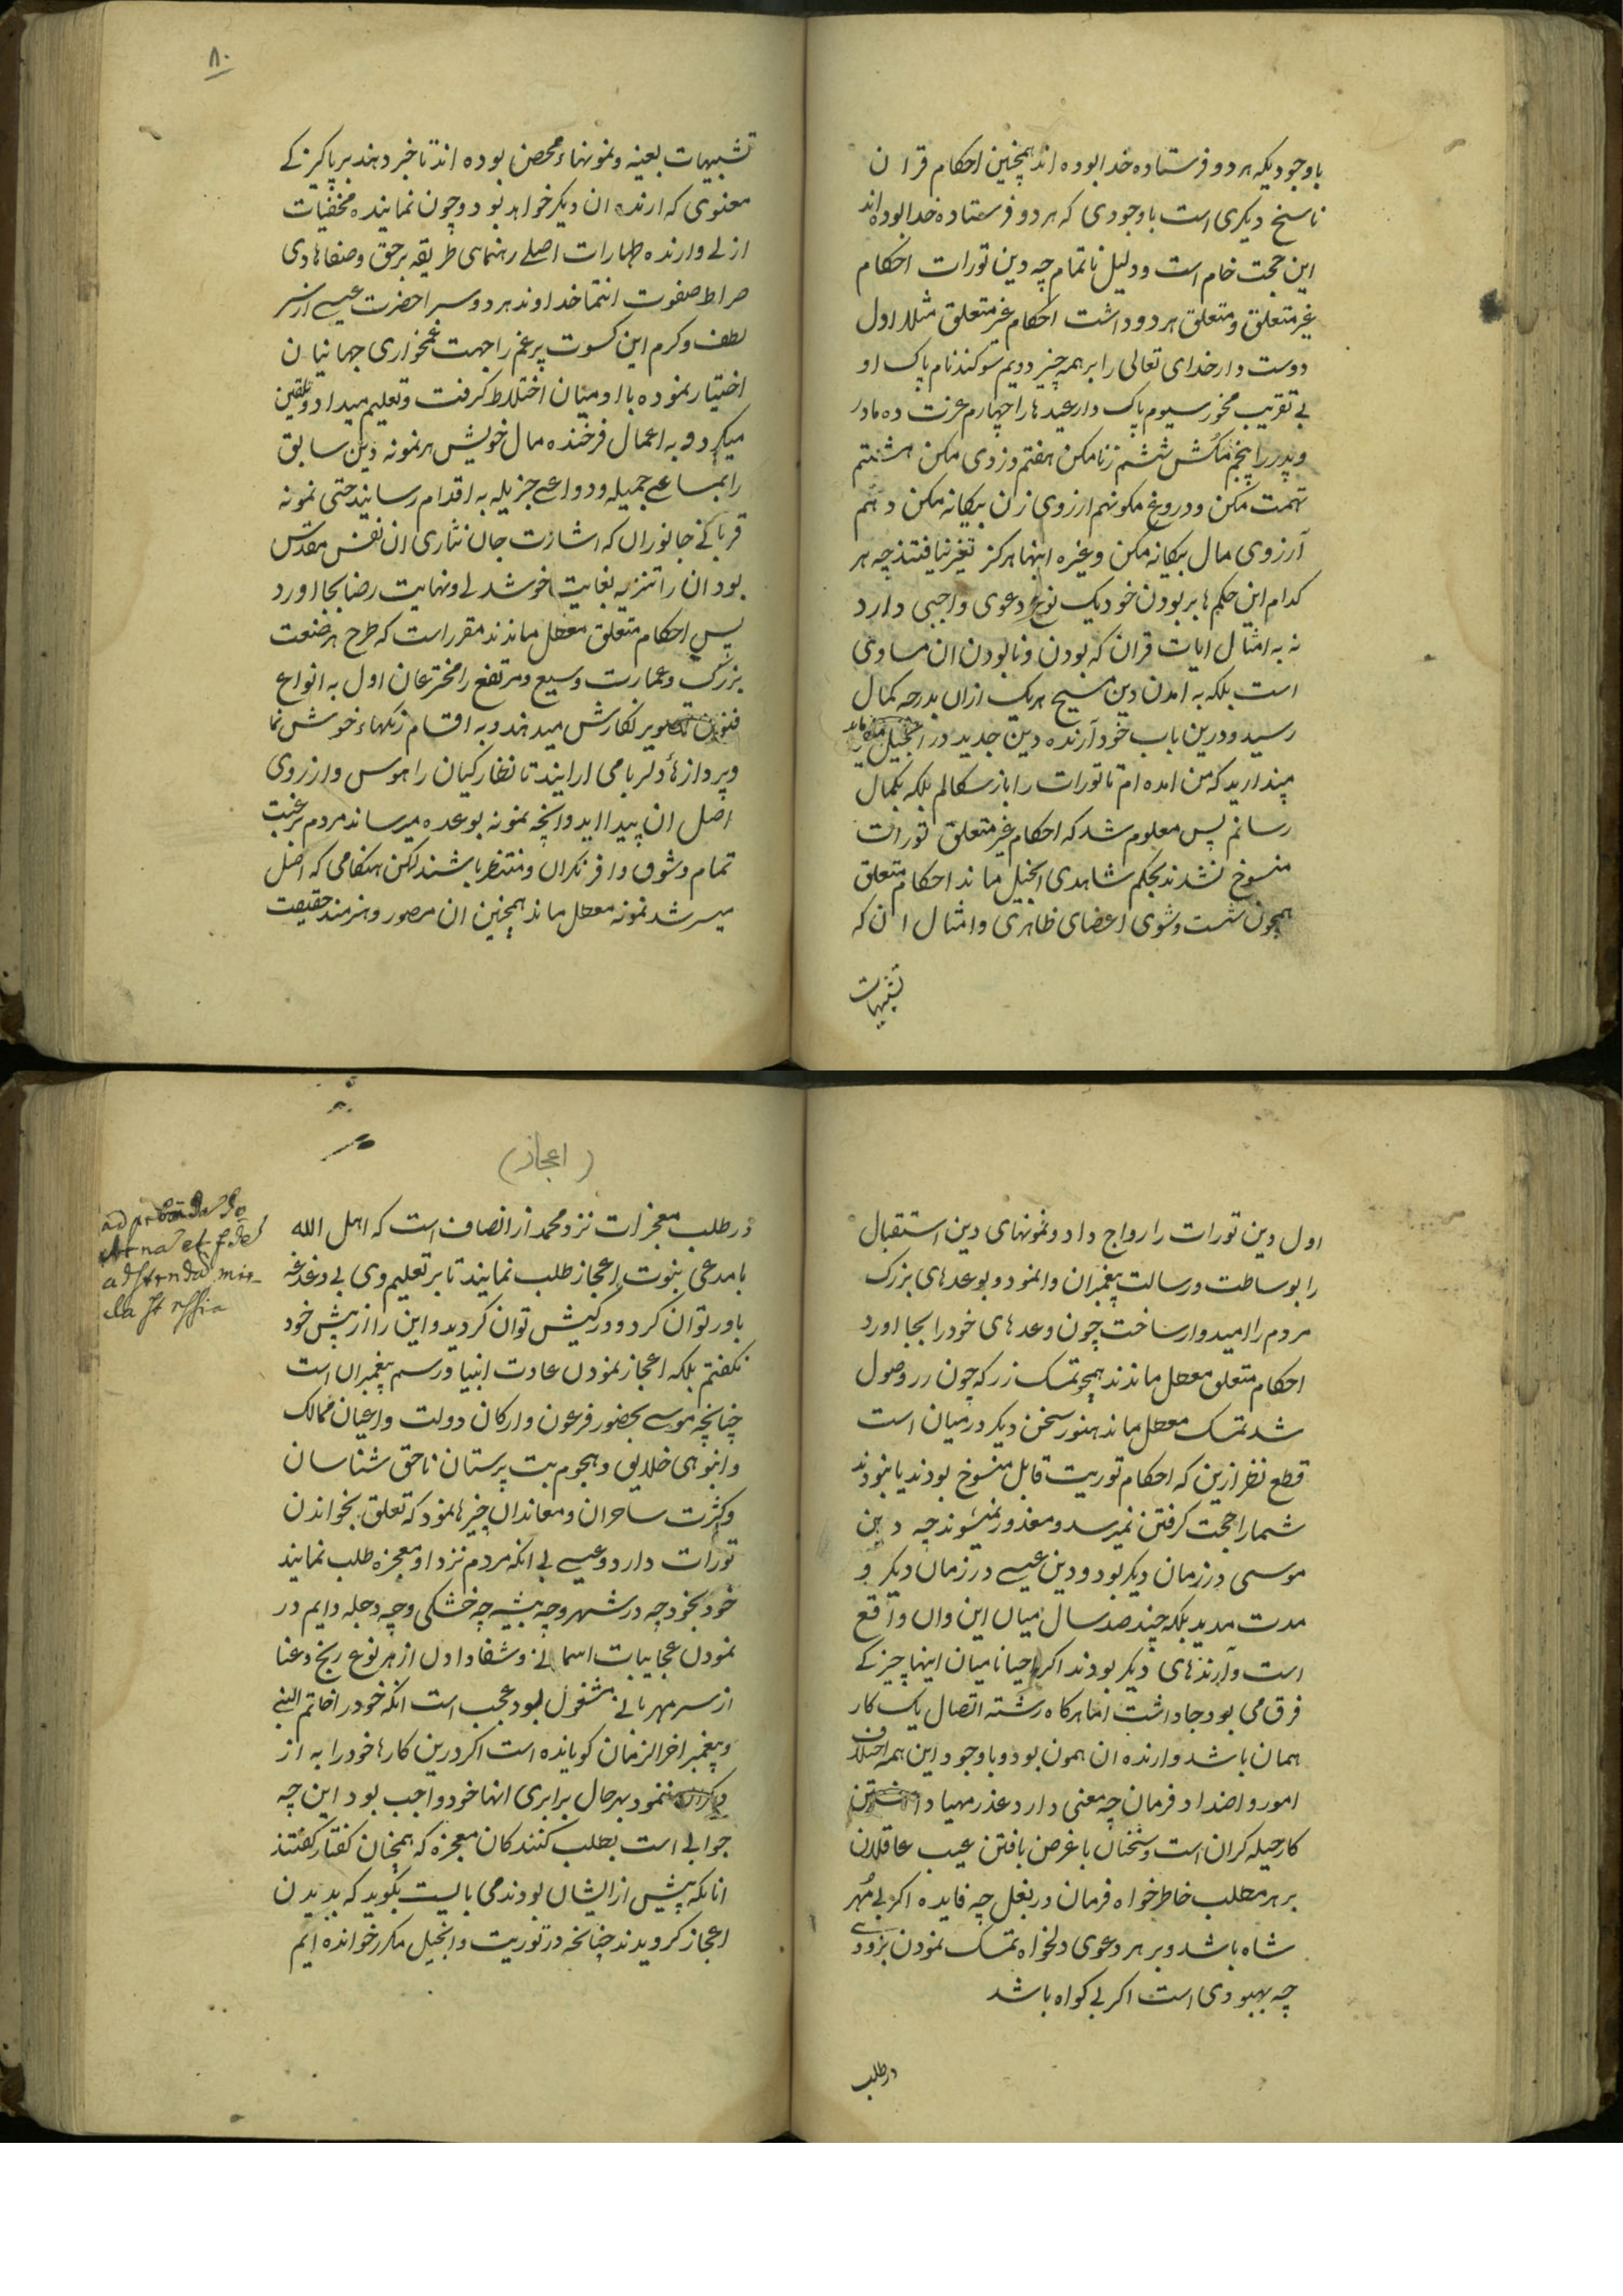 باوجودیکه هر دو فرستاده خدا بوده اند همچنین احکام قران
ناسخ دیکری است باوجودی که هر دو فرستاده خدا بوده اند
این حجت خام است و دلیل ناتمام چه دین تورات احکام
غیر متعلق و متعلق هر دو داشت احکام غیر متعلق مثلا اول
دوست دار خدای تعالی را بر همه چیز دویم سوکند نام پاک او
بی تقریب مخور سیوم پاک دار عیدها را چهارم عزت ده مادر
و پدر را پنجم مکُش ششم زنا مکن هفتم دزدی مکن هشتم
تهمت مکن و دروغ مکو نهم ارزوی زن بیکانه مکن دهم
آرزوی مال بیکانه مکن وغیره اینها هرکز تغیر نیافتند چه هر
کدام این حکم ها بر بودن خود یک نوع دعوی واجبی دارد
نه به امثال ایات قران که بودن و نابودن ان مساوی
است بلکه به امدن دین مسیح هر یک ازان بدرجه کمال
رسید و درین باب خود آرنده دین جدید در انجیل
مپندارید که من امده ام تا تورات را باز سکالم بلکه بکمال
رسانم پس معلوم شد که احکام غیر متعلق تورات
منسوخ نشدند بحکم شاهدی انجیل ماند احکام متعلق
همچون شست و شوی اعضای ظاهری و امثال ان که
تشبیهات
۸۰
تشبیهات بعینه و نمونهاء محض بوده اند تا خبر دهند بر پاکیزکے
معنوی که ارنده ان دیکر خواهد بود و چون نماینده مخفیات
ازلے و ارنده طهارات اصلے رهنمای طریقه بر حق و صفا هادی
صراط صفوت انتما خداوند هر دو سرا حضرت عیسے از سر
لطف و کرم این کسوت پر غم را جهت غمخواری جهانیان
اختیار نموده با ادمیان اختلاط کرفت و تعلیم میداد و تلقین
میکرد و به اعمال فرخنده مال خویش هر نمونه دین سابق
را بمساعے جمیله و دواعے جزیله به اقدام رسانید حتی نمونه
قربانے جانوران که اشارت جان نثاری ان نفس مقدس
بود ان را تنزیه بغایت خوشدلے و نهایت رضا بجا اورد
پس احکام متعلق معطل ماندند مقرر است که طرح هر صنعت
بزرک و عمارت وسیع و مرتفع را مخترعان اول به انواع
فنون تصویر نکارش میدهند و به اقسام رنکهاء خوش نما
و پردازهاُ دلربا می ارایند تا نظارکیان را هوس و ارزوی
اصل ان پیدا اید و انچه نمونه بوعده میرساند مردم برغبت
تمام و شوق وافر نکران و منتظر باشند لکن هنکامی که اصل
میسر شد نمونه معطل ماند همچنین ان مصور و هنرمند حقیقت
اول دین تورات را رواج داد و نمونهای دین استقبال
را بوساطت و رسالت پیغمبران وا نمود و بوعدهای بزرک
مردم را امیدوار ساخت چون وعدهای خود را بجا اورد
احکام متعلق معطل ماندند همچو تمسک زر که چون زر وصول
شد تمسک معطل ماند هنوز سخن دیکر در میان است
قطع نظر ازین که احکام توریت قابل منسوخ بودند یا نبودند
شما را حجت کرفتن نمیرسد و معذور نمیشوند چه دین
موسی در زمان دیکر بود و دین عیسے در زمان دیکر و
مدت مدید بلکه چند صد سال میان این و ان واقع
است و آرندهای دیکر بودند اکر احیانا میان اینها چیزکے
فرق می بود جا داشت اما هرکاه رشته اتصال یک کار
همان باشد و ارنده ان همون بود و باوجود این همه اختلاف
امور و اضداد فرمان چه معنی دارد عذر مهیا داشتن
کار حیله کران است و سخنان با غرض بافتن عیب عاقلان
بر هر مطلب خاطر خواه فرمان در بغل چه فایده اکر بی مُهر
شاه باشد و بر هر دعوی دلخواه تمسک نمودن بزودے
چه بهبودی است اکر بی کواه باشد
در طلب
(اعجاز)
در طلب معجزات نزد محمد از انصاف است که اهل الله
با مدعی نبوت اعجاز طلب نمایند تا بر تعلیم وی بی دغدغه
باور توان کرد و در کیش توان کردید و این را از پیش خود
نکفتم بلکه اعجاز نمودن عادت انبیا و رسم پیغمبران است
چنانچه موسے بحضور فرعون و ارکان دولت و اعیان ممالک
و انبوهی خلایق و هجوم بت پرستان ناحق شناسان
و کثرت ساحران و معاندان چیزها نمود که تعلق بخواندن
تورات دارد و عیسے بی انکه مردم نزد او معجزه طلب نمایند
خود بخود چه در شهر و چه بیشه چه خشکی و چه دجله دایم در
نمودن عجایبات اسمانے و شفا دادن از هر نوع رنج و عنا
از سر مهربانے مشغول بود عجب است انکه خود را خاتم النبی
و پیغمبر اخر الزمان کویانده است اکر درین کارها خود را به از
دیکران ننمود بهر حال برابری انها خود واجب بود این چه
جوابے است بطلب کنندکان معجزه که همچنان کفتار کفتند
انانکه پیش از ایشان بودند می بایست بکوید که بدیدن
اعجاز کرویدند چنانچه در توریت و انجیل مکرر خوانده ایم